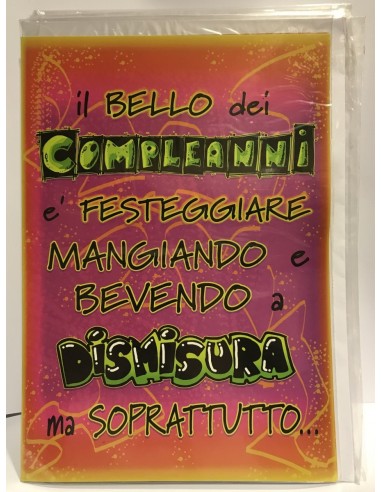 il BELLO dei
COMPLEANNI
e' FESTEGGIARE
MANGIANDO e
BEVENDO a
DISMISURA
ma SOPRATTUTTO...